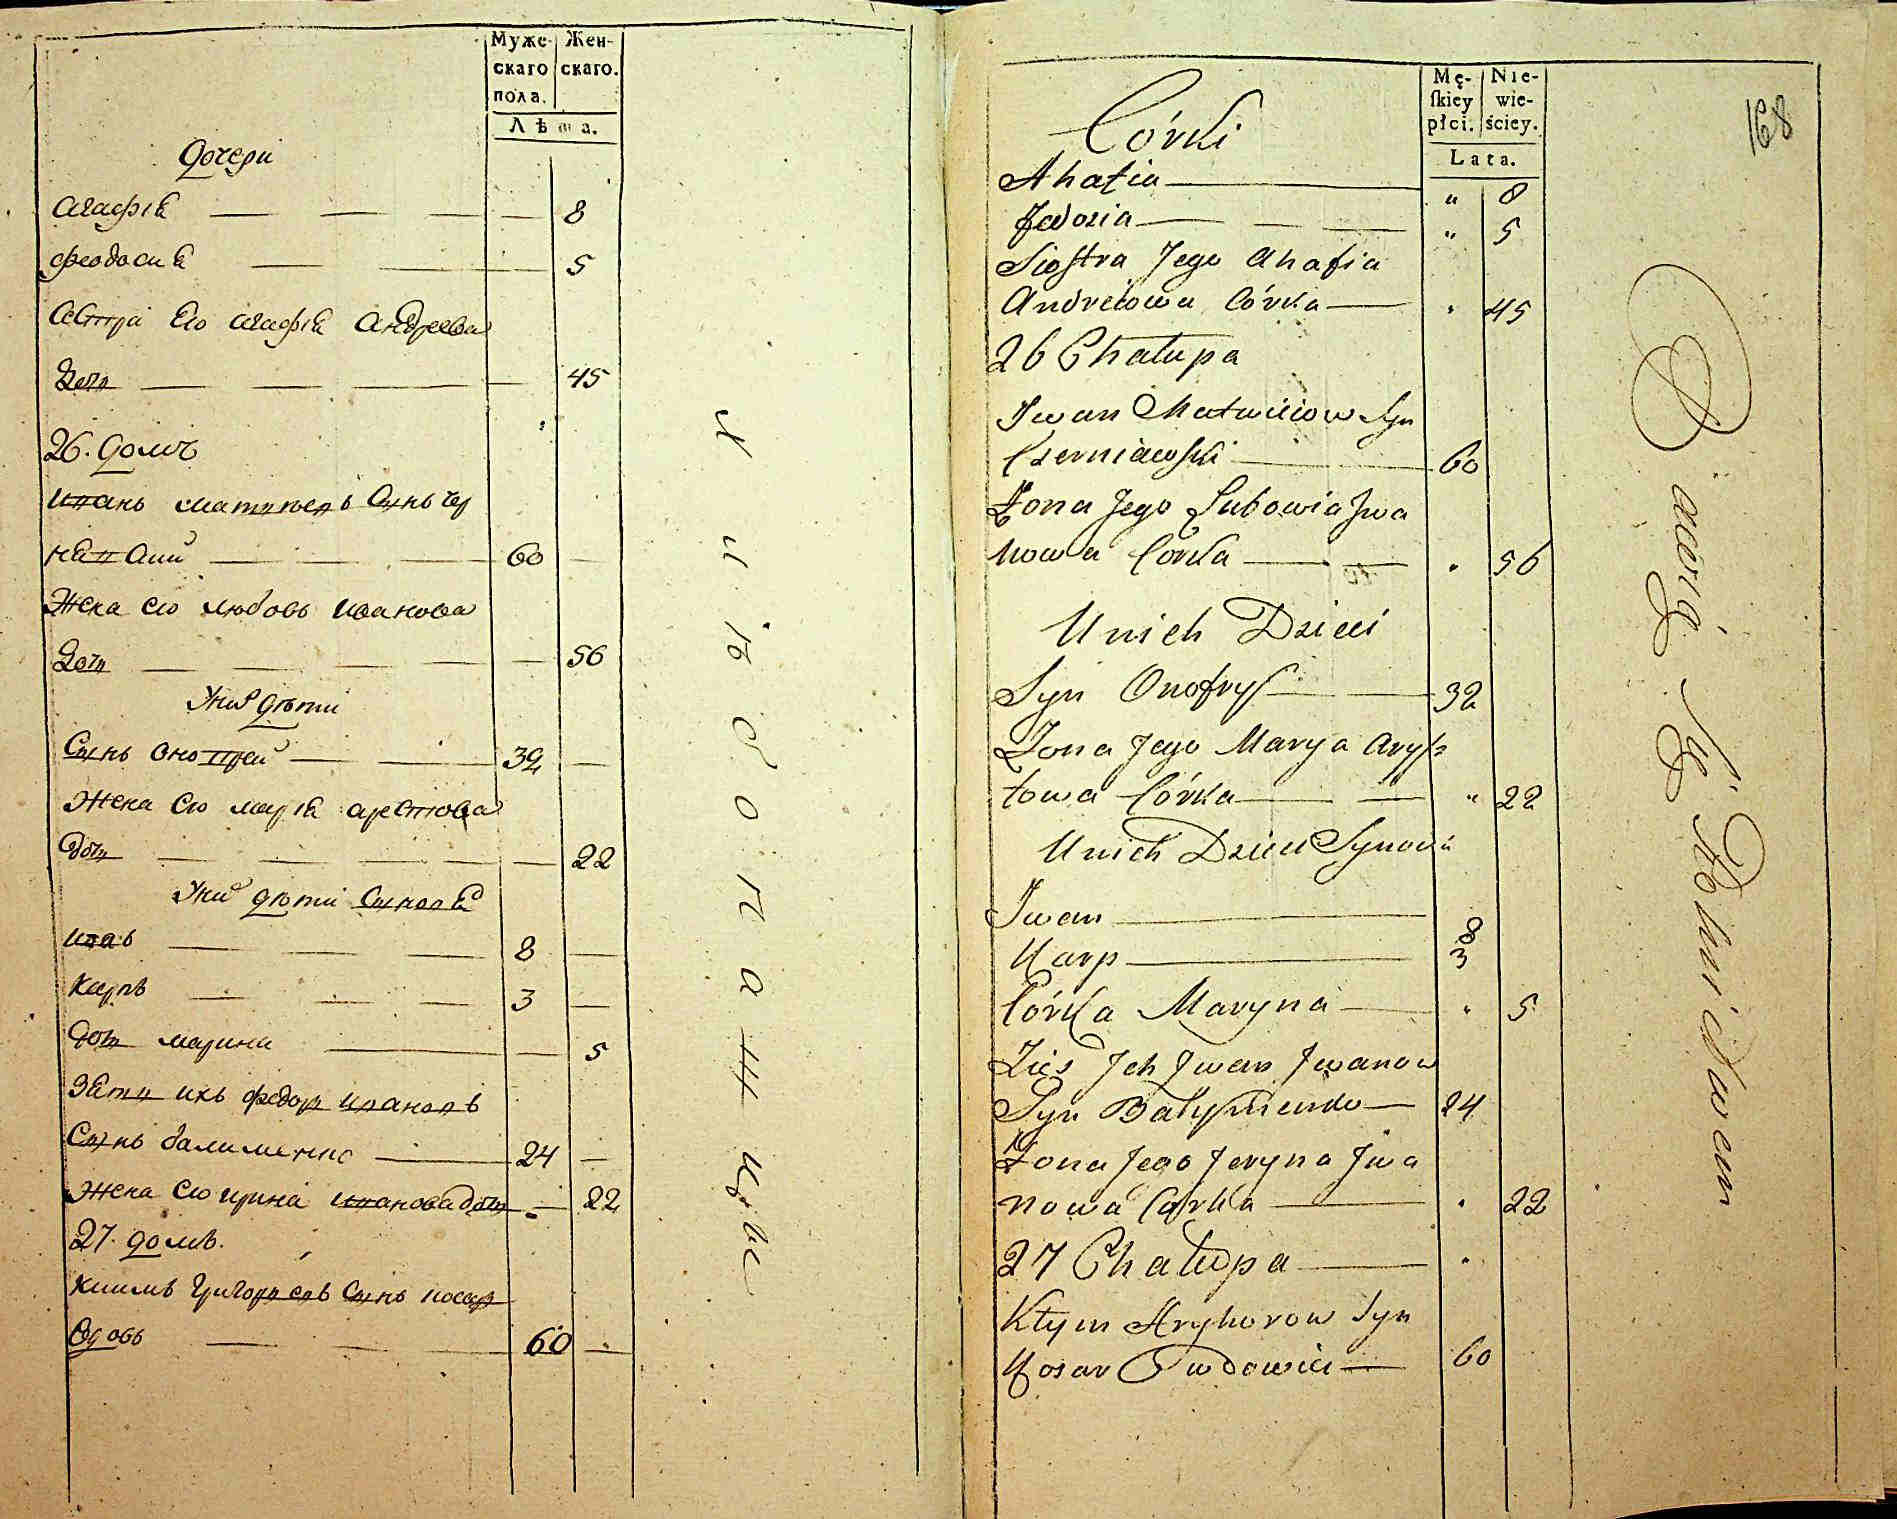 Муже-
скаго
пола.
Жен-
скаго.
Лѣта.
Дочери
Агафія 8
Феодосия 5
Сестра Его агафія Андреева
Дочь 45
26. Домъ
Иванъ матвеевъ Сынъ Чер
нявский 60
Жена его любовь иванова
Дочь 56
У них дѣти
Сынъ Онопрей 32
Жена его марія
Дочь 22
У них дѣти Сыновя
Иванъ 8
Карпъ 3
Дочь марина 5
Зять ихъ федоръ ивановъ
Сынъ 24
Жена его ирина иванова дочь 22
27. домъ.
Климъ Григорьевъ Сынъ косар
60
Mę-
ſkiey
płci.
Nie-
wie-
ściey.
Lata.
168
Córki
Ahafia " 8
Fedosia " 5
Siostra Jego Ahafia
Andreiowa Córka " 45
26 Chałupa
Jwan Matwieiow Syn
Czerniawski 60
Żona Jego Lubowia Jwa
nowa Córka " 56
U nich Dzieci
Syn Onofry 32
Żona Jego Marya
towa Córka " 22
U nich Dzieci Synowie
Jwan 8
Karp 3
Córka Maryna " 5
Zięć Jch Jwan Jwanow
Syn 24
Żona Jego Jeryna Jwa
nowa Corka " 22
27 Chałupa "
Kłym Hryhorow Syn
Kosar 60
Bawią Się Rolnictwem